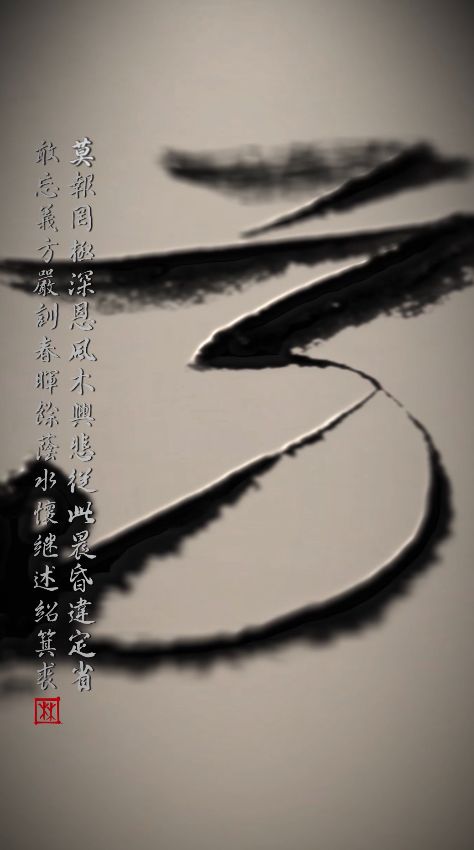 莫報罔極深恩風木興悲從此晨昏違定省
敢忘義方嚴訓春暉餘蔭永懷継述紹箕裘
林